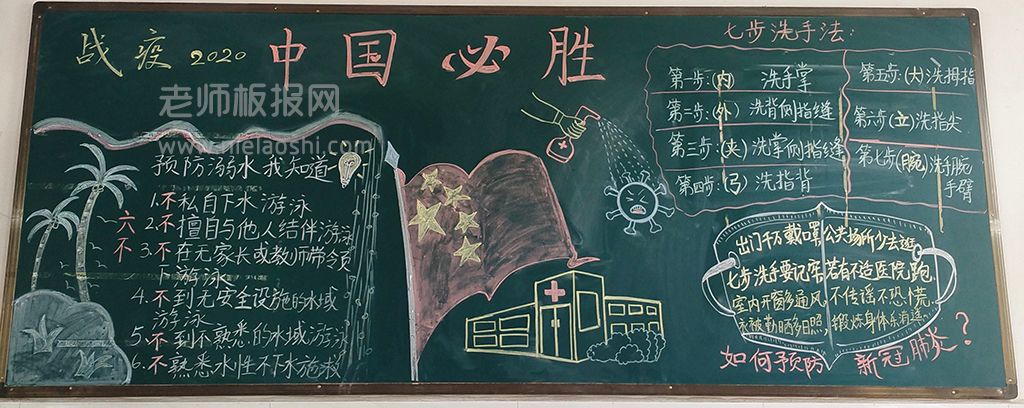 战疫 2020 中国必胜
老师板报网
预防溺水我知道
六不
1.不私自下水游泳
2.不擅自与他人结伴游泳
3.不在无家长或教师带领
下游泳
4.不到无安全设施的水域
游泳
5.不到不熟悉的水域游泳
6.不熟悉水性不下水施救
七步洗手法:
第一步:(内) 洗手掌
第二步:(外) 洗背侧指缝
第三步:(夹)洗掌侧指缝
第四步:(弓) 洗指背
第五步:(大)洗拇指
第六步:(立)洗指尖
第七步(腕)洗手腕
手臂
出门千万戴口罩公共场所少去逛
七步洗手要记牢若有不适医院跑
室内开窗多通风,不传谣不恐慌
衣被勤晒多日照 锻炼身体乐逍遥
如何预防 新冠肺炎?